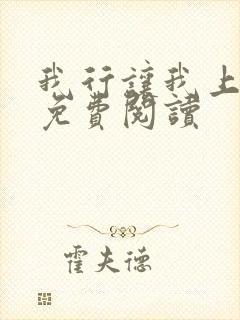 我行讓我上
免費閱讀
霍夫德